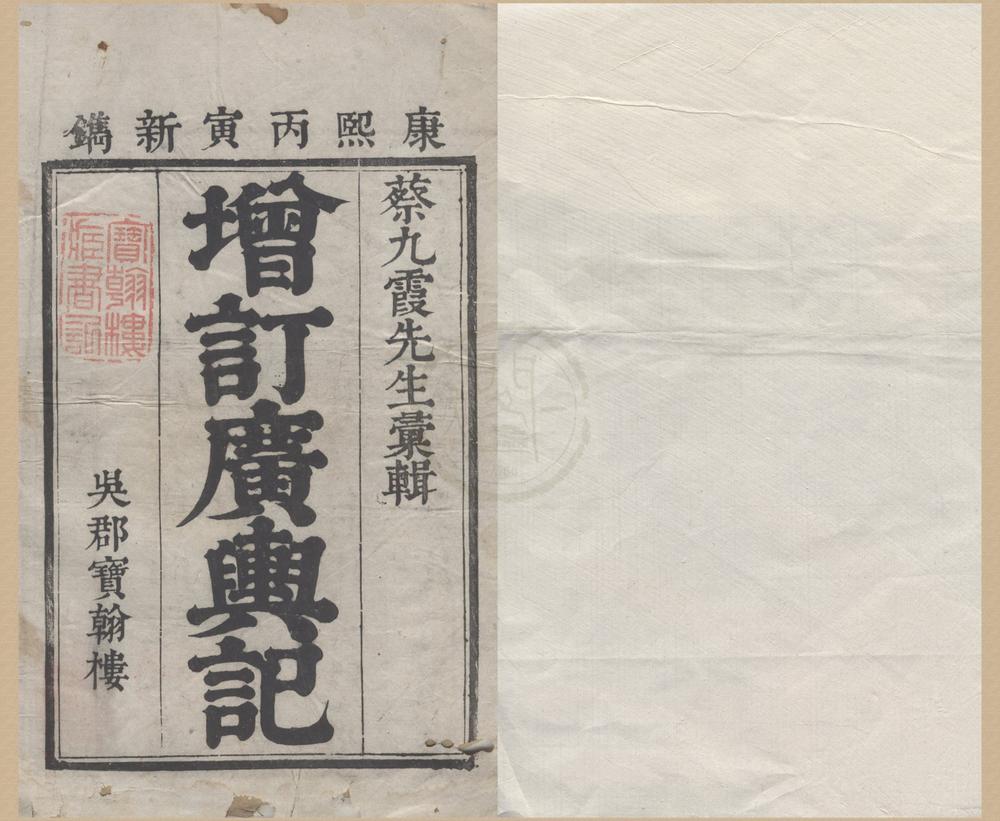 康熙丙寅新鐫
蔡九霞先生彙輯
增訂廣輿記
吳郡寶翰樓
寶翰樓
藏書記